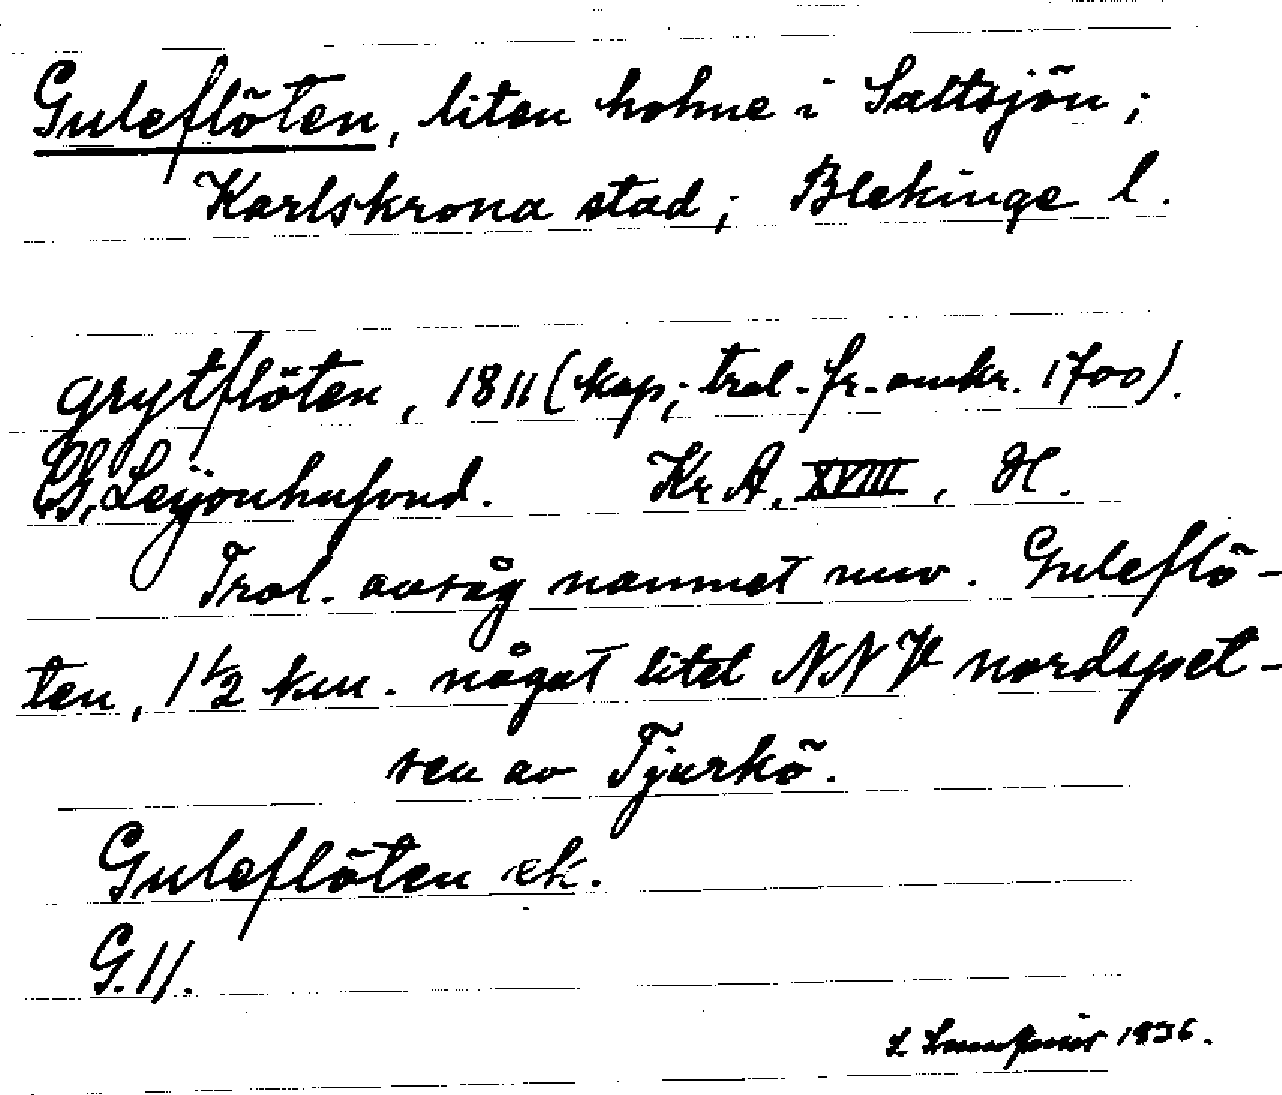 Guleflöten, liten holme i Saltsjön;
Karlskrona stad; Blekinge l.
grytflöten, 1811 (kop; trol. fr. omkr. 1700).
CG, Leijonhufvud. Kr A, XVIII, H.
Trol. avsåg namnet nuv. Guleflö-
ten, 1 1/2 km. något litet NNV nordspet-
sen av Tjurkö.
Guleflöten ek.
G. 11.
1936.